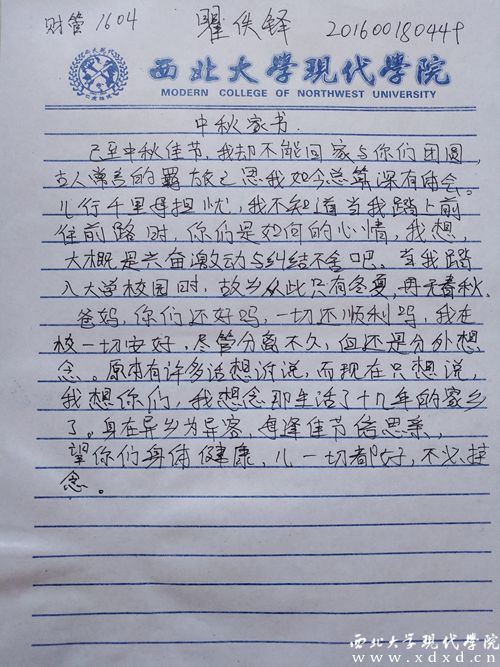 财管1604 瞿佚铎 2016001804449
西北大学現代學院
MODERN COLLEGE OF NORTHWEST UNIVERSITY
中秋家书.
已至中秋佳节,我却不能回家与你们团圆,
古人常言的羁旅之思我如今总算深有体会。
儿行千里母担忧,我不知道当我踏上前
往前路时,你们是如何的心情,我想,
大概是兴奋激动与纠结不舍吧。当我踏
入大学校园时,故乡从此只有冬夏,再无春秋.
爸妈,你们还好吗,一切还顺利吗,我在
校一切安好,尽管分离不久,但还是分外想
念。原本有许多话想诉说,而现在只想说,
我想你们,我想念那生活了十几年的家乡
了。身在异乡为异客,每逢佳节倍思亲,
望你们身体健康,儿一切都好,不必挂
念。
西北大学现代学院
www.xdxd.cn